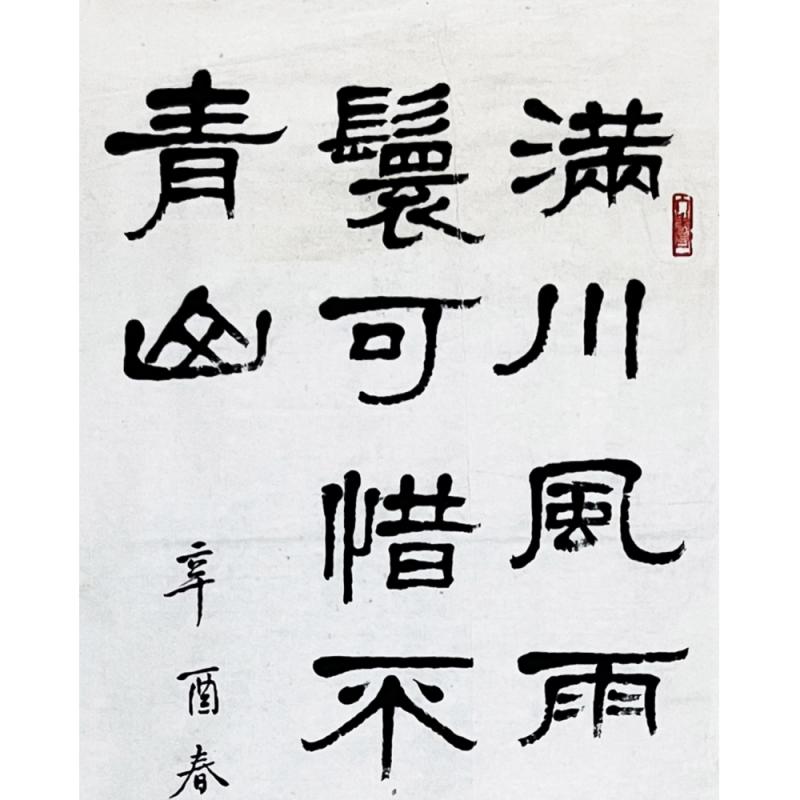 滿川風雨
鬟可惜不
青山
辛酉春